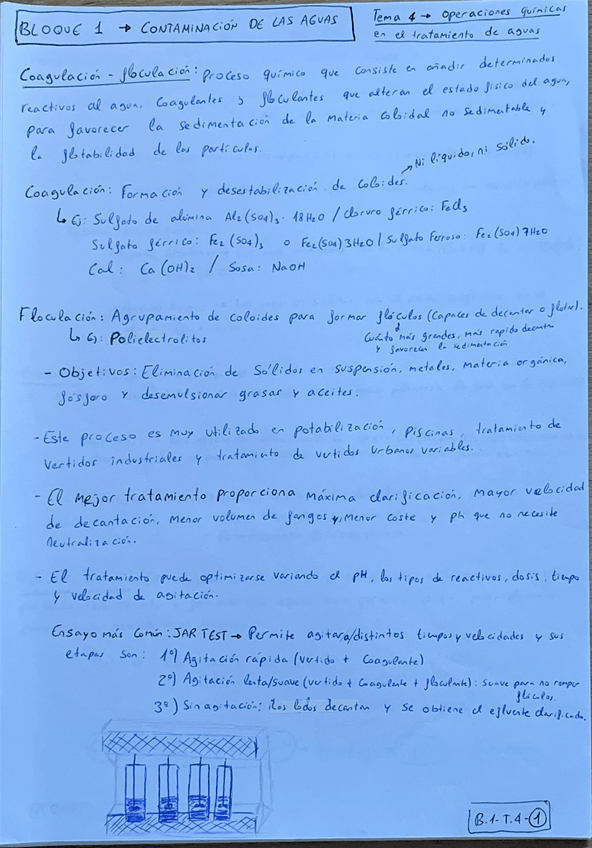 BLOQUE 1 → CONTAMINACIÓN DE LAS AGUAS
Tema 4 → Operaciones químicas
en el tratamiento de aguas
Coagulación - floculación: Proceso químico que consiste en añadir determinados
reactivos al agua. Coagulantes y floculantes que alteran el estado físico del agua,
para favorecer la sedimentación de la materia coloidal no sedimentable y
la flotabilidad de las partículas.
Coagulación: Formación y desestabilización de coloides. → Ni líquido, ni sólido.
↳ Ej: Sulfato de alúmina Al2(SO4)3 · 18H2O / Cloruro férrico: FeCl3
Sulfato férrico: Fe2(SO4)3 o Fe2(SO4)3H2O / Sulfato Ferroso: Fe2(SO4)7H2O
Cal: Ca(OH)2 / Sosa: NaOH
Floculación: Agrupamiento de coloides para formar flóculos (Capaces de decantar o flotar).
↳ Ej: Polielectrolitos
Cuánto más grandes, más rapido decanta
y favorecen la sedimentación
- Objetivos: Eliminación de Sólidos en suspensión, metales, materia orgánica,
fósforo y desemulsionar grasas y aceites.
- Este proceso es muy utilizado en potabilización, piscinas, tratamiento de
vertidos industriales y tratamiento de vertidos urbanos variables.
- El mejor tratamiento proporciona máxima clarificación, mayor velocidad
de decantación, menor volumen de fangos y menor coste y ph que no necesite
neutralización.
- El tratamiento puede optimizarse variando el pH, los tipos de reactivos, dosis, tiempo
y velocidad de agitación.
Ensayo más común: JAR TEST → Permite agitar a distintos tiempos y velocidades y sus
etapas son: 1º) Agitación rápida (vertido + Coagulante)
2º) Agitación lenta/suave (vertido + Coagulante + floculante): Suave para no romper
flóculos.
3º) Sin agitación: los lodos decantan y se obtiene el efluente clarificado.
B.1-T.4-1